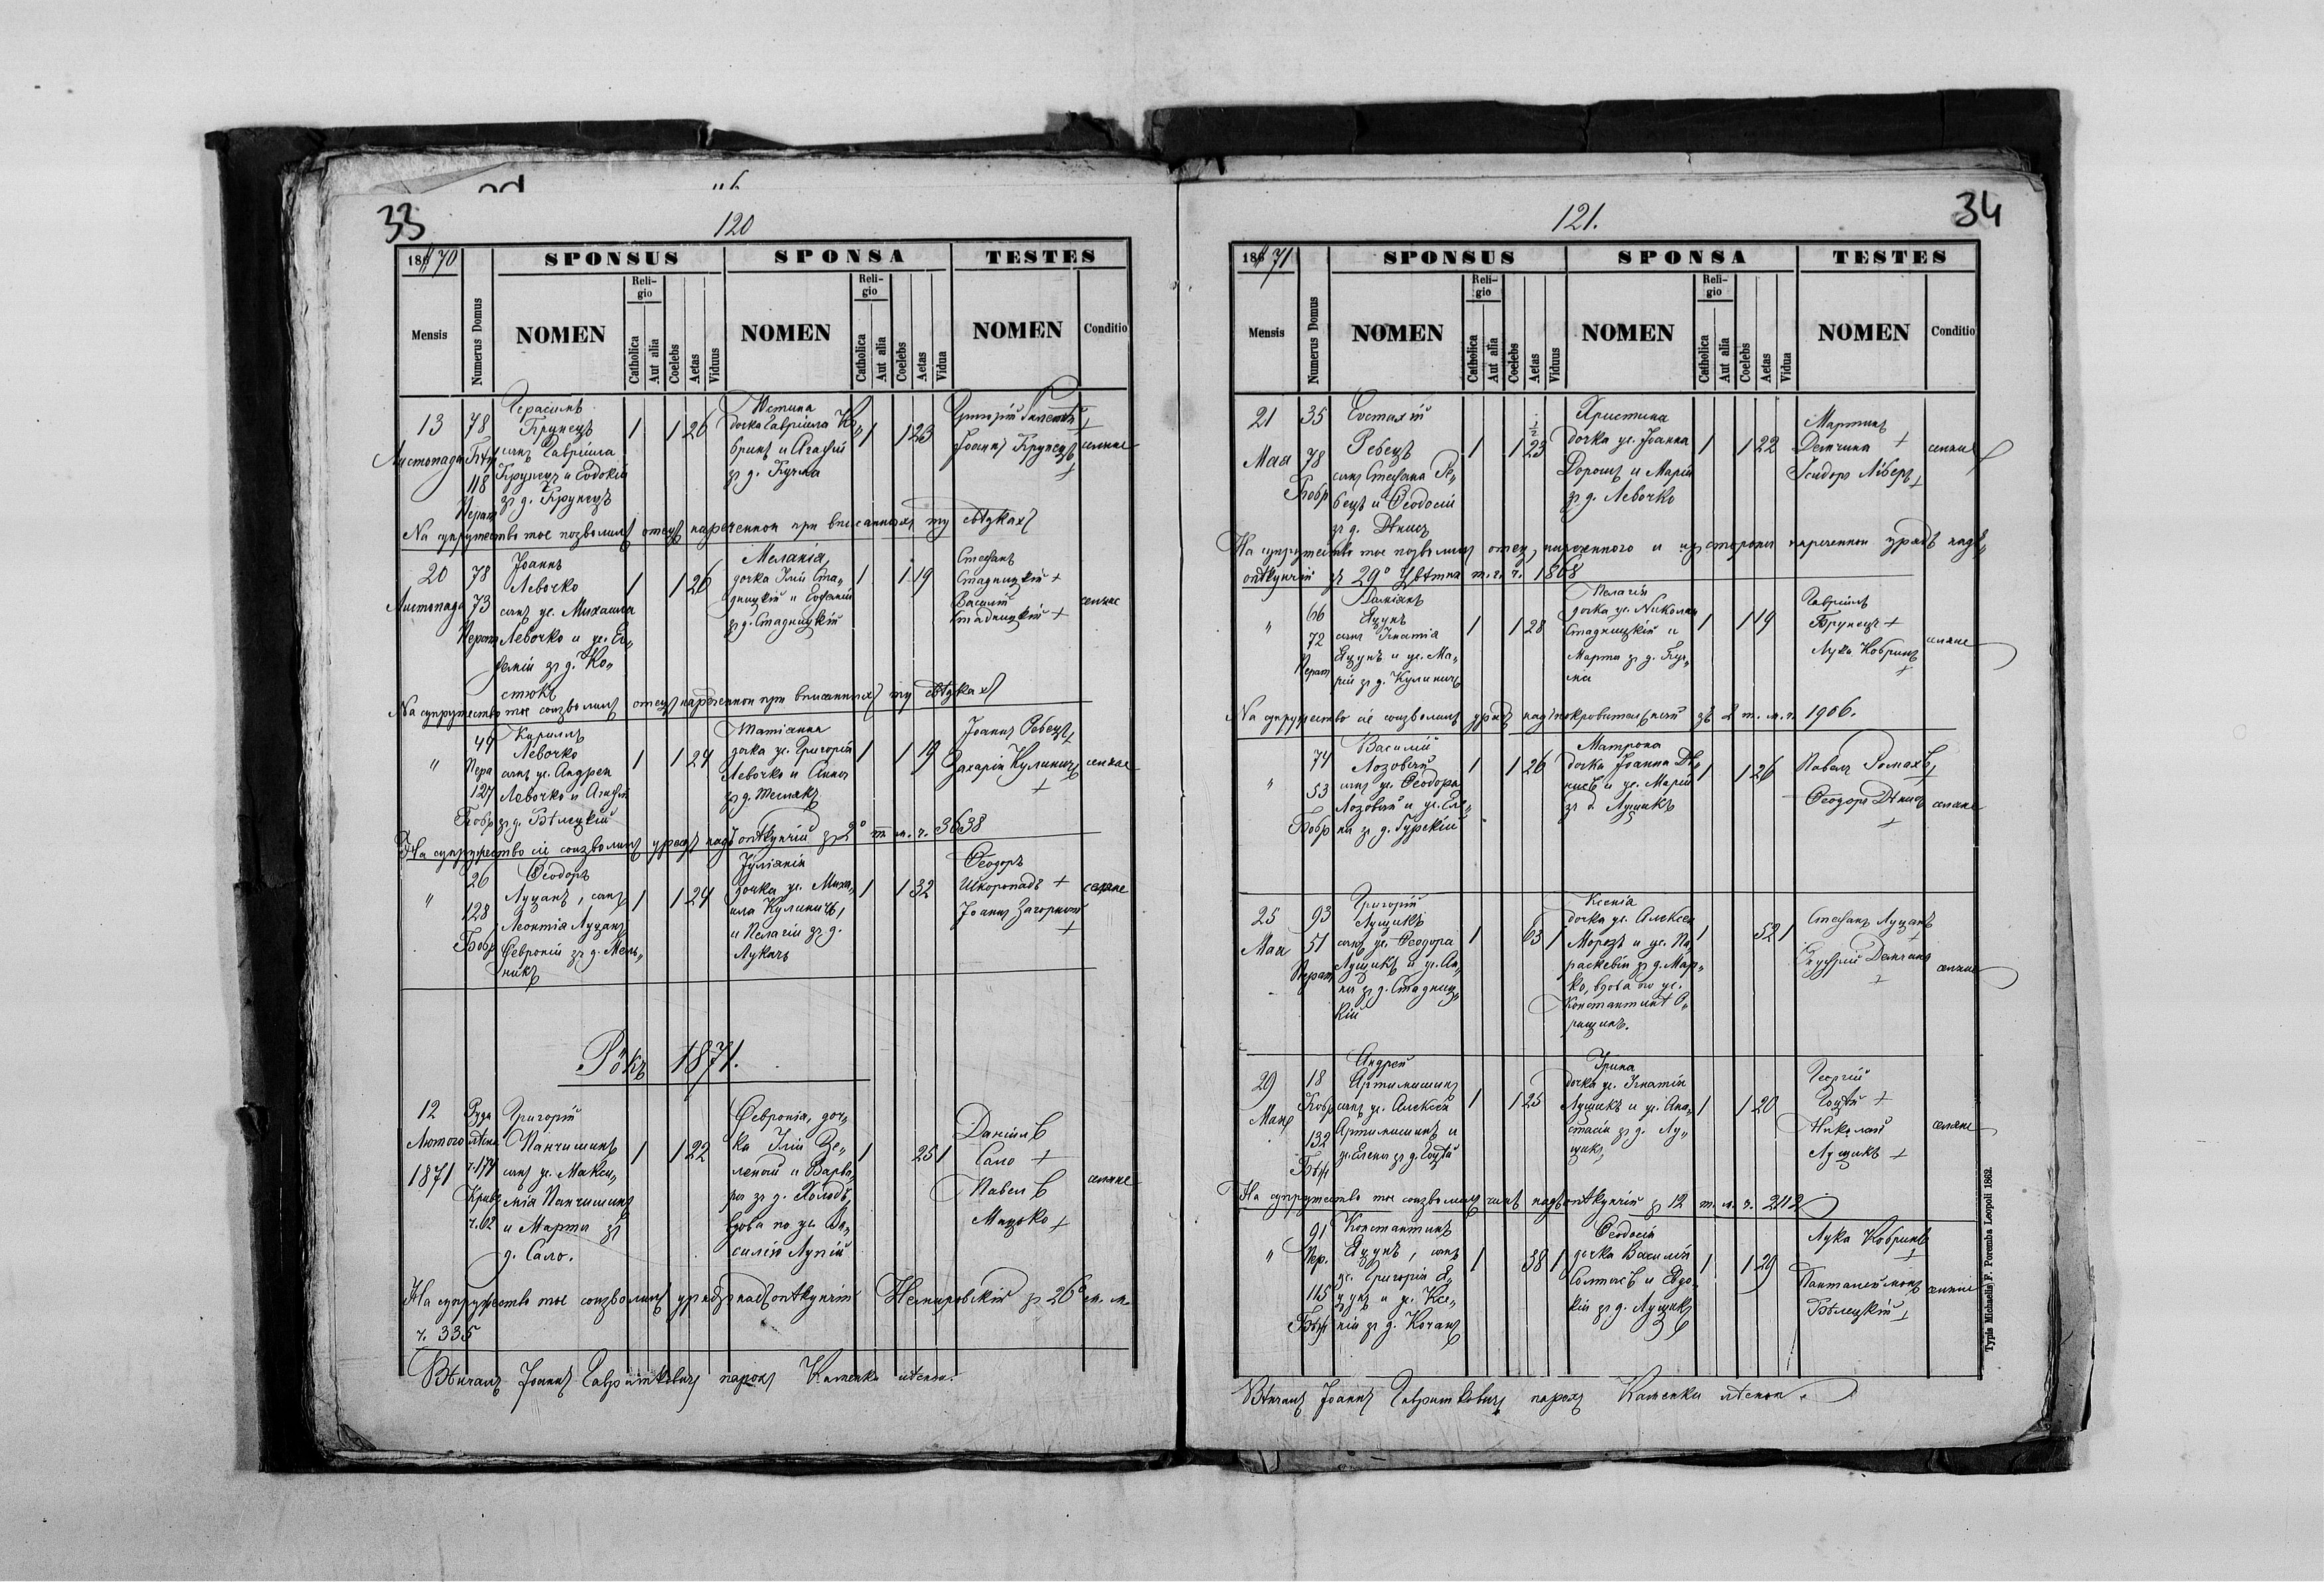 33
120
1870
SPONSUS
SPONSA
TESTES
Mensis
Numerus Domus
NOMEN
Religio
Catholica
Aut alia
Coelebs
Aetas
Viduus
NOMEN
Religio
Catholica
Aut alia
Coelebs
Aetas
Vidua
NOMEN
Conditio
13
Листопада
78
118
Герасимъ
Брунецъ
сынъ Гавріила
Брунецъ и Евдокіи
зъ д. Брунецъ
1
1
26
Юстина
дочка Гавріила
и Агафіи
зъ д. Кучма
1
1
23
Григорій
Іоаннъ Брунецъ
+
селяне
На супружество тое позволилъ отецъ нареченной при вписанныхъ ту свѣдкахъ
20
Листопада
78
73
Іоаннъ
Левочко
сынъ ум. Михаила
Левочко и ум. Ев„
зъ д. Ко„
стюкъ
1
1
26
Меланія,
дочка Іліи Ста„
дницкій и Софіи
зъ д. Стадницкій
1
1
19
Стефанъ
Стадницкій +
Василій
Стадницкій +
селяне
На супружество тое соизволилъ отецъ нареченной при вписанныхъ ту свѣдкахъ
"
49
127
Бобр
Кириллъ
Левочко
сынъ ум. Андрея
Левочко и Агафіи
зъ д. Бѣлецкій
1
1
24
Татіанна
дочка ум. Григорія
Левочко и Анны
зъ д.
1
1
19
Іоаннъ Ребецъ +
Захарій Кулиничъ
+
селяне
На супружество сіе соизволилъ урядъ надъопѣкунчій зъ 2° т. м. ч. 3638
"
26
128
Бобр
Ѳеодоръ
Луцанъ, сынъ
Леонтія Луцанъ
Февроніи зъ д. Мель„
никъ
1
1
24
Іуліанія
дочка ум. Миха„
ила Кулиничъ,
и Пелагіи зъ д.
Лукачъ
1
1
32
Ѳеодоръ
Шкоропадъ +
Іоаннъ Загорный
+
селяне
Рôкъ 1871.
12
Лютого
1871
Руда
ч. 174
ч. 62
Григорій
Панчишинъ
сынъ ум. Макси„
мія Панчишинъ
и Марты зъ
д. Сало.
1
1
22
Февронія, доч„
ка Іліи Зе„
леной и Варва„
ры зъ д. Холодъ,
вдова по ум. Ва„
силію Лупій
1
25
1
Даніилъ
Сало +
Павелъ
Мацько +
селяне
На супружество тое соизволилъ урядъ надъопѣкунчій Немировскій зъ 26° м. м.
ч. 335
Вѣнчалъ Іоаннъ Гавришкевичъ парохъ Каменки лѣсной.
34
121.
1871
SPONSUS
SPONSA
TESTES
Mensis
Numerus Domus
NOMEN
Religio
Catholica
Aut alia
Coelebs
Aetas
Viduus
NOMEN
Religio
Catholica
Aut alia
Coelebs
Aetas
Vidua
NOMEN
Conditio
21
Мая
35
78
Бобр
Евстахій
Ребецъ
сынъ Стефана Ре„
бецъ и Ѳеодосіи
зъ д. Дѣнисъ
1
1
23
Христина
дочка ум. Іоанна
Дорошъ и Маріи
зъ д. Левочко
1
1
22
Мартинъ
Демчина +
Ісидоръ
+
селяне
На супружество тое позволилъ отецъ нареченного и изъ стороны нареченной урядъ надъ„
опѣкунчій зъ 29° Цвѣтня т. г. ч. 1868
"
66
72
Даміанъ
Яцунъ
сынъ Игнатія
Яцунъ и ум. Ма„
ріи зъ д. Кулиничъ
1
1
28
Пелагія
дочка ум. Николая
Стадницкій и
Марты зъ д. Куч„
ма
1
1
19
Гавріилъ
Брунецъ +
Лука Кобринъ
+
селяне
На супружество сіе соизволилъ урядъ надъпокровительскій зъ 2 т. м. ч. 1906.
"
74
53
Бобр
Василій
Лозовый
сынъ ум. Ѳеодора
Лозовый и ум. Еле„
ны зъ д. Гурскій
1
1
26
Матрона
дочка Іоанна Дѣ„
нисъ и ум. Маріи
зъ д. Лущикъ
1
1
26
Павелъ Ромахъ +
Ѳеодоръ Дѣнисъ
+
селяне
25
Мая
93
51
Григорій
Лущикъ
сынъ ум. Ѳеодора
Лущикъ и ум. Ан„
ны зъ д. Стадниц„
кій
1
63
1
Ксенія
дочка ум. Алексея
Морозъ и ум. Па„
раскевіи зъ д. Мар„
ко, вдова по ум.
Константинѣ
1
52
1
Стефанъ Луцанъ
+
Онуфрій Демчина
+
селяне
29
Мая
18
Бобр
132
Андрей
Артимишинъ
сынъ ум. Алексея
Артимишинъ и
ум. Елены зъ д. Гоцій
1
1
25
Ирина
дочка ум. Игнатія
Лущикъ и ум. Ана„
стасіи зъ д. Лу„
щикъ
1
1
20
Георгій
Гоцій +
Николай
Лущикъ +
селяне
На супружество тое соизволилъ урядъ надъопѣкунчій зъ 12 т. м. ч. 2112
"
91
Пер.
115
Константинъ
Яцунъ, сынъ
ум. Григорія Я„
цунъ и ум. Ксе„
ніи зъ д. Кочанъ
1
38
1
Ѳеодосія
дочка Василія
Солтысъ и Евдо„
кіи зъ д. Лущикъ
1
1
29
Лука Кобринъ
+
Пантелеймонъ
Бѣлецкій +
селяне
Вѣнчалъ Іоаннъ Гавришкевичъ парохъ Каменки лѣсной.
Typis Michaelis F. Poremba Leopoli 1862.